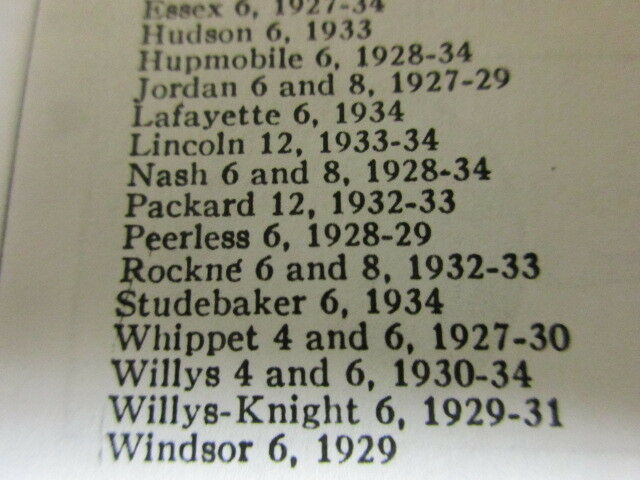 Essex 6, 1927-34
Hudson 6, 1933
Hupmobile 6, 1928-34
Jordan 6 and 8, 1927-29
Lafayette 6, 1934
Lincoln 12, 1933-34
Nash 6 and 8, 1928-34
Packard 12, 1932-33
Peerless 6, 1928-29
Rockné 6 and 8, 1932-33
Studebaker 6, 1934
Whippet 4 and 6, 1927-30
Willys 4 and 6, 1930-34
Willys-Knight 6, 1929-31
Windsor 6, 1929